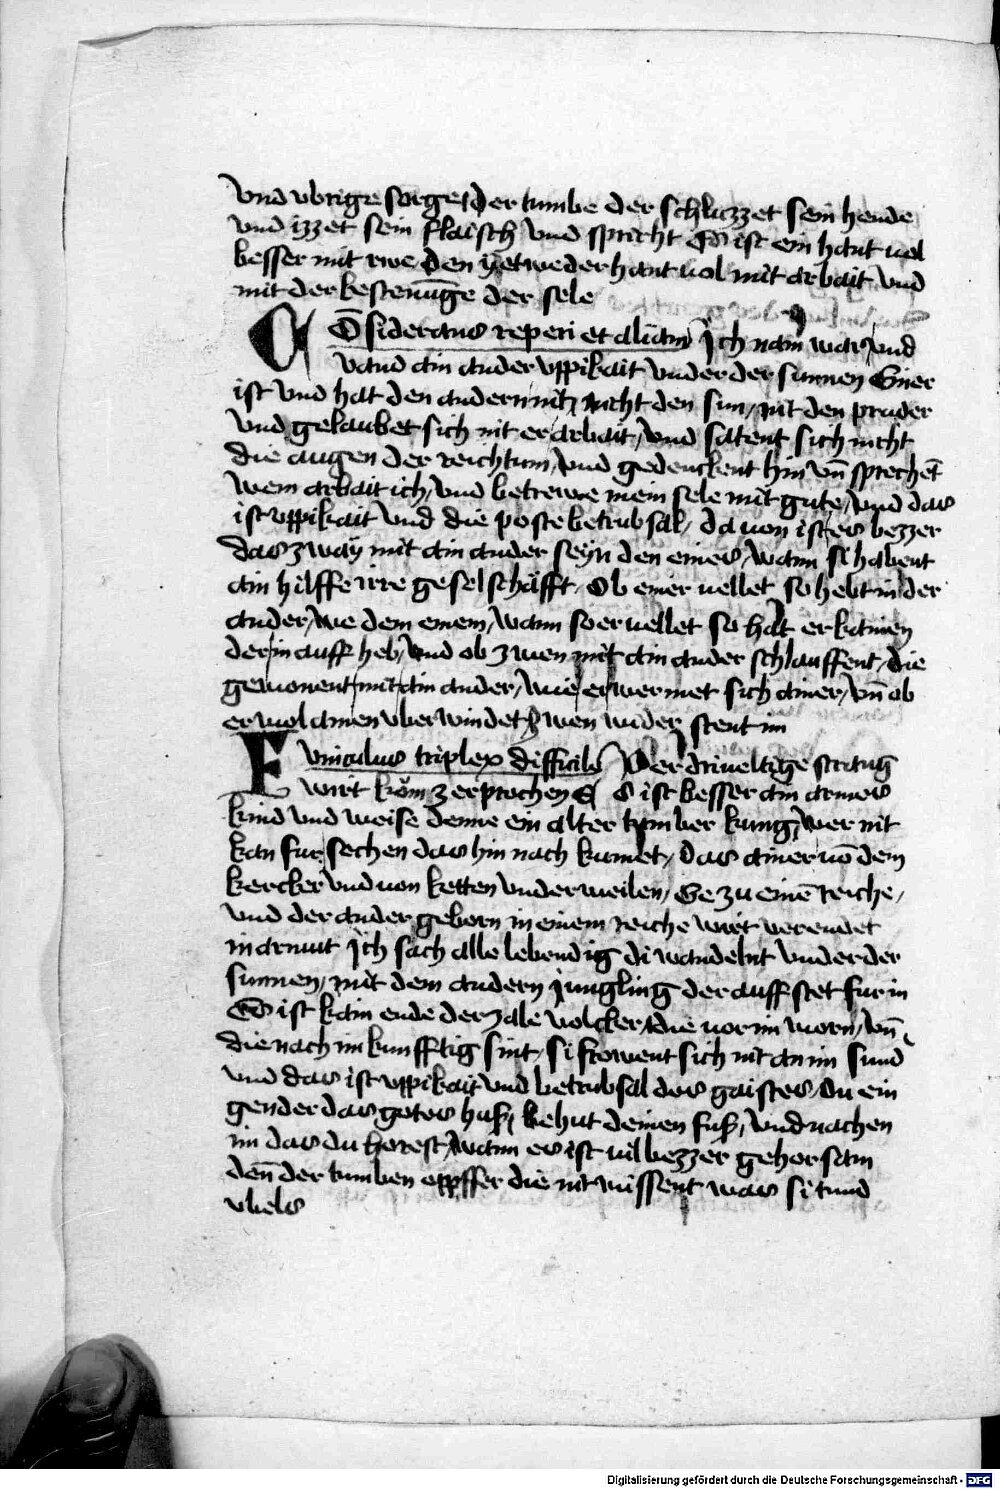 vnd vbrige sorge Der tumbe der schluzzet sein hende
vnd izzet sein flaisch vnd spricht Es ist ein hant uol
besser mit rwe den yetweder hant uol mit arbait vnd
mit der bestenūge der sele
COsiderans reperi et aliam Ich nam war vnd
vand ain ander vppikait vnder der sunnen Einer
ist vnd hat den andern nit nicht den sun nit den pruder
vnd gelaubet sich nit er arbait vnd satent sich nicht
die augen der reichtum vnd gedenckent hin vn̄ sprechēt
wem arbait ich vnd betrewe mein sele mit gute vnd das
ist vppikait vnd die poste betrubsal da uon ist es bezzer
das zway mit ain ander seyn den eines wann si habent
ain hilffe irre geselschafft Ob einer uellet so hebt in der
ander we dem einem wann so er uellet so hat er kainen
der in auff heb vnd ob zwen mit ain ander schlauffent die
gewonent mit ain ander wie erwermet sich ainer vn̄ ob
er wol ainen vberwindet zwen wider stent im
Funiculus triplex difficile Der driueltige strang
wirt kům zerprochen Es ist besser ain armes
kind vnd weise denne ein alter tumber kung der nit
kan fur sechen das hin nach kumet das ainer uō dem
kercker vnd uon ketten vnderweilen Ge zu einē reiche
vnd der ander geborn in einem reiche wirt verendet
in armut Ich sach alle lebendig di wandelnt vnder der
sunnen mit dem andern jungling der auff stet fur in
Es ist kain ende der zale volcker die uor im worn vn̄
die nach im kunfftig sint si frowent sich nit an im sund
vnd das ist vppikait vnd betrubsal des gaistes Du ein
gender das gotes hus behut deinen fuß vnd nachen
im das du horest wann es ist uil bezzer gehorsam
den̄ der tumben oppffer die nit wissent was si tund
vbels
Digitalisierung gefördert durch die Deutsche Forschungsgemeinschaft - DFG